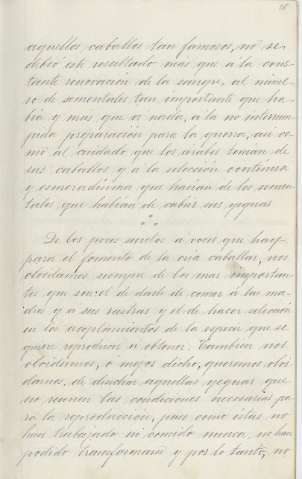 aquellos caballos tan famosos, no se
debió este resultado mas que a la cons-
tante renovación de la sangre, al núme-
ro de sementales tan importante que ha-
bía y mas que a nada, a la no interrum-
pida preparación para la guerra, así co-
mo al cuidado que los árabes toman de
sus caballos y a la selección continua
y esmeradísima que hacían de los semen-
tales que habían de cubrir sus yeguas
De los pocos medios a veces que hay
para el fomento de la cría caballar, nos
olvidamos siempre de los mas importan-
tes que son: el de darle de comer a las ma-
dres y a sus rastras y el de hacer selección
en los acoplamientos de la especie que se
quiere reproducir u obtener. Tambien nos
olvidamos, o mejor dicho, queremos olvi-
darnos, de desechar aquellas yeguas que
no reunen las condiciones necesarias pa-
ra la reproducción, pues como éstas no
han trabajado ni comido nunca, no han
podido transformarse y por lo tanto, no